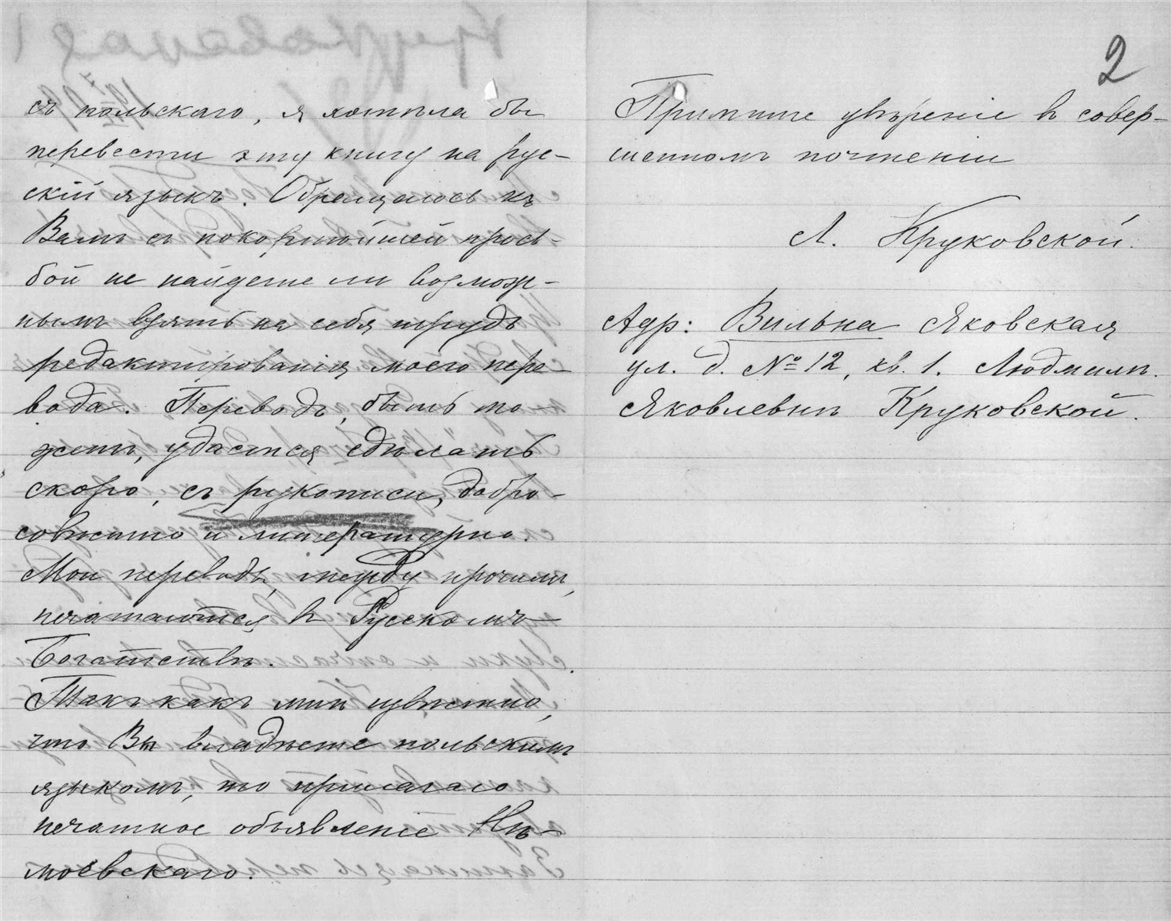 съ польскаго, я хотѣла бы
перевести эту книгу на рус-
скій языкъ. Обращаюсь къ
Вамъ съ покорнѣйшей прось-
бой не найдете ли возмож-
нымъ взять на себя трудъ
редактированія моего пере-
вода. Переводъ, быть мо-
жетъ, удастся сдѣлать
скоро, съ рукописи, добро-
совѣстно и литературно.
Мои переводы, между прочимъ,
печатаются въ Русскомъ
Богатствѣ.
Такъ какъ мнѣ извѣстно,
что Вы владѣете польскимъ
языкомъ, то прилагаю
печатное объявленіе Нѣ-
моевскаго.
2
Примите увѣреніе в совер-
шенномъ почтеніи
Л. Круковской.
Адр: Вильна Яковская
ул. д. № 12, кв. 1. Людмилѣ
Яковлевнѣ Круковской.